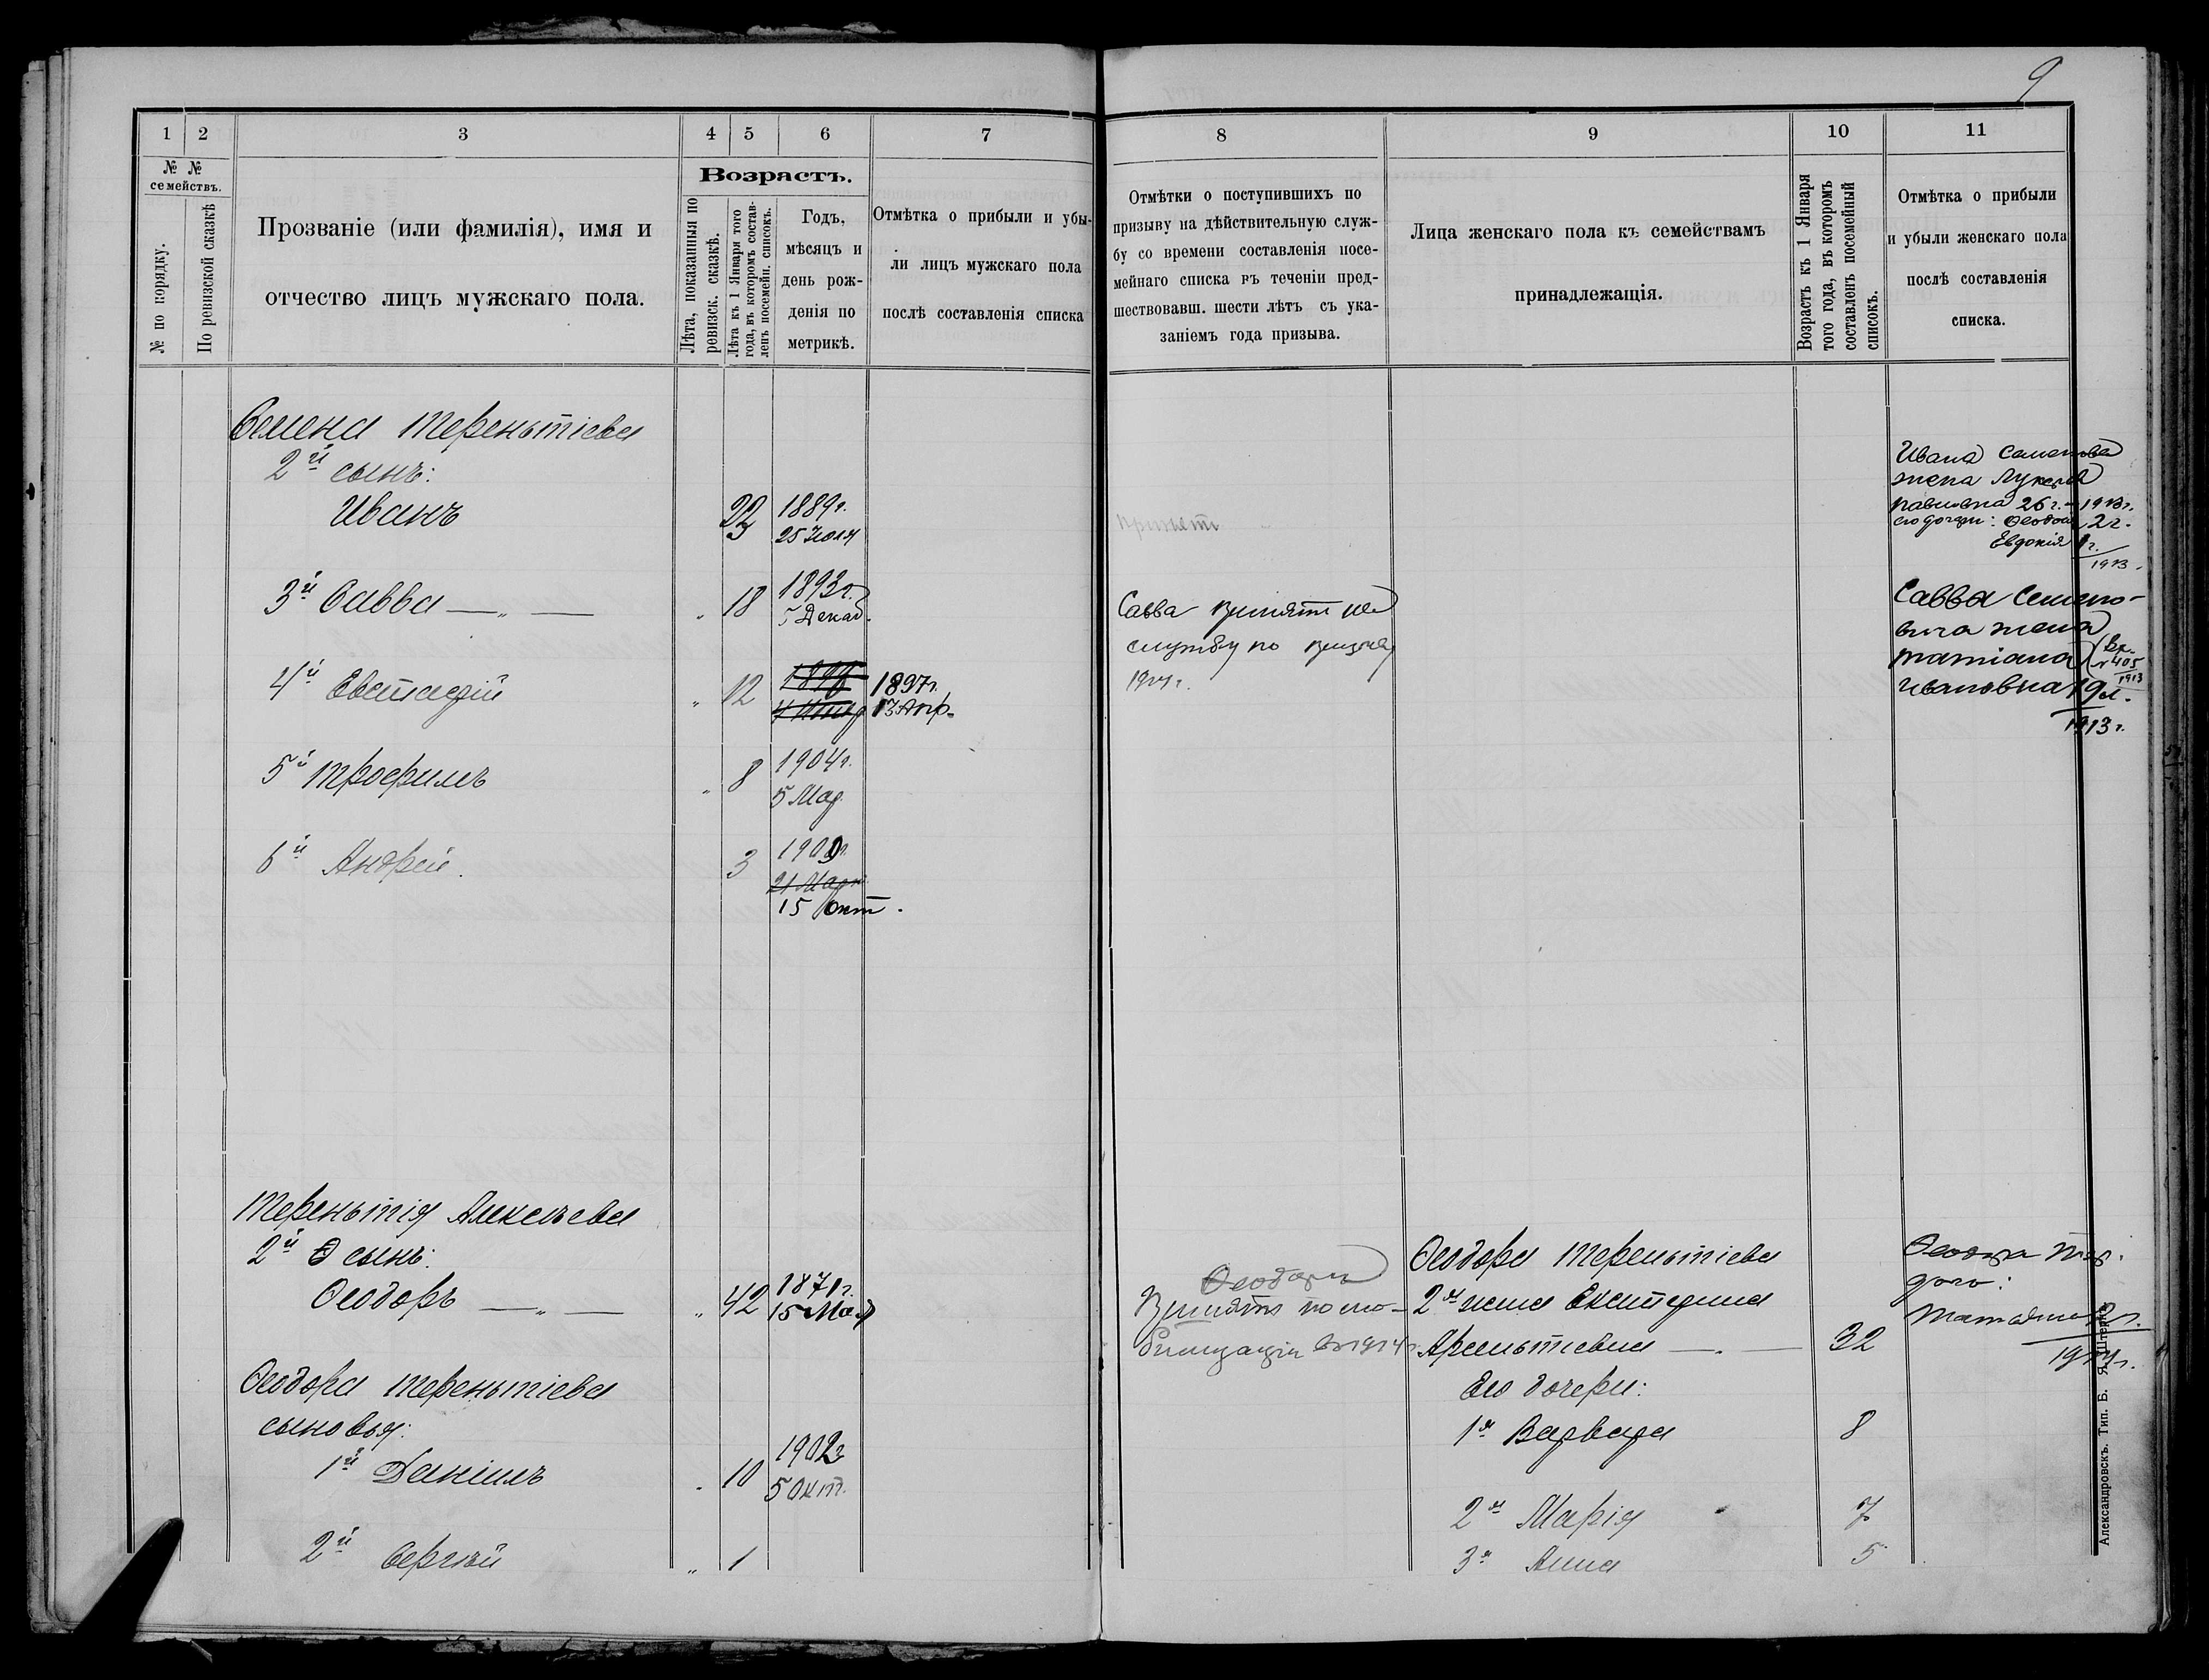 9
1 2 3 4 5 6 7 8 9 10 11
№ № семействъ.
№ по порядку.
По ревизской сказкѣ
Прозваніе (или фамилія), имя и
отчество лицъ мужскаго пола.
Возрастъ.
Лѣта, показанныя по
ревизск. сказкѣ.
Лѣта къ 1 Января того
года, въ которомъ состав-
ленъ посемейн. списокъ.
Годъ,
мѣсяцъ и
день рож-
денія по
метрикѣ.
Отмѣтка о прибыли и убы-
ли лицъ мужскаго пола
послѣ составленія списка
Отмѣтки о поступившихъ по
призыву на дѣйствительную служ-
бу со времени составленія посе-
мейнаго списка въ теченіи пред-
шествовавш. шести лѣтъ съ ука-
заніемъ года призыва.
Лица женскаго пола къ семействамъ
принадлежащія.
Возрастъ къ 1 Января
того года, въ которомъ
составленъ посемейный
списокъ.
Отмѣтка о прибыли
и убыли женскаго пола
послѣ составленія
списка.
Семена Терентьіева
2й сынъ:
Иванъ 22 1889г.
25 Іюля
Ивана Семенова
жена Лукерья
Павловна 26 г. - 1913г.
его дочери: Ѳеодос 2 г.
Евдокія 1 г.
1913
3й Савва — „ — „ 18 1893г.
5 Декаб.
Савва принятъ на
службу по призыву
Савва Семено-
вича жена
Татіана
Ивановна 19 л.
1913 г.
Вх.
№ 405
1913
4й Евстафій „ 12 1897г.
13 Апр.
5й Трофимъ „ 8 1904г.
5 Мар.
6й Андрей. 3 1909г.
21 Мар
15 Окт.
Терентьія Алексѣева
2й сынъ:
Ѳеодоръ — „ — „ 42 1871г.
15 Мая
Ѳеодоръ
Принятъ по мо-
билизаціи въ 1914г.
Ѳеодора Терентьіева
2я жена Екатерина
Арсентьевна — . — 32
Ѳеодора Тер.
дочь:
Татьяна 2 г.
Ѳеодора Терентьіева
сыновья:
1й Даніилъ „ 10 1902г.
5 Окт.
2й Сергѣй „ 1
Его дочери:
1я Варвара 8
2я Марія 7
3я Анна 5
Александровскъ. Тип. Б. Я. Штернъ.